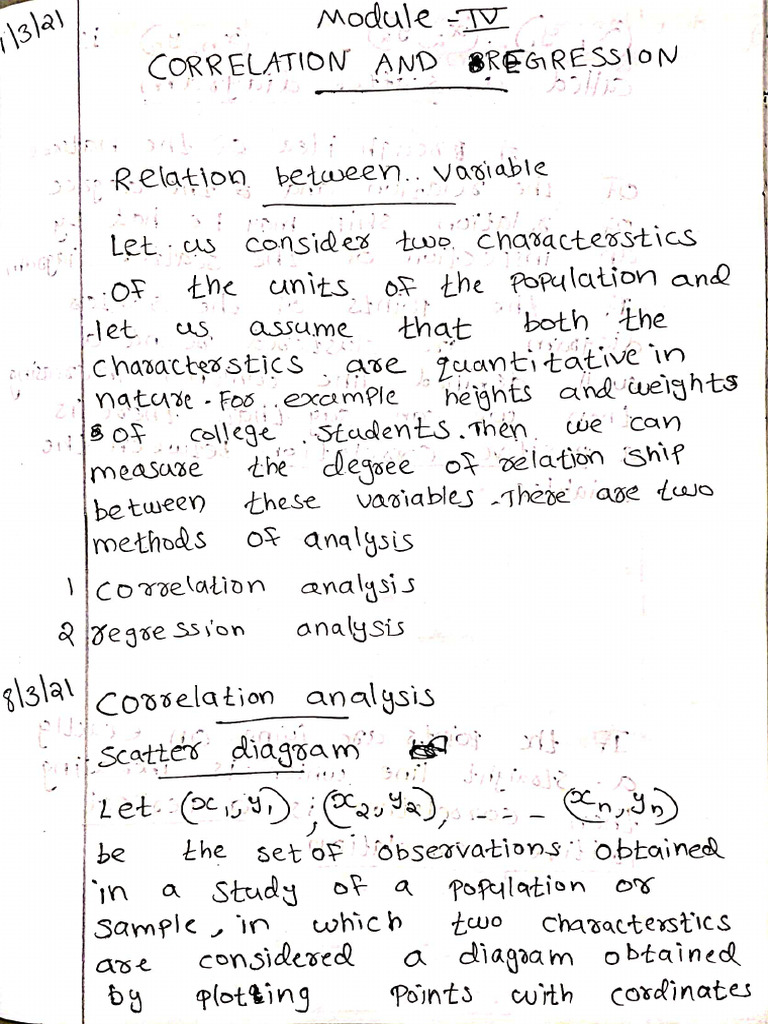 1/3/21
Module - IV
CORRELATION AND REGRESSION
Relation between variable
Let us consider two characterstics
of the units of the population and
let us assume that both the
characterstics are quantitative in
nature. For example heights and weights
of college students. Then we can
measure the degree of relation ship
between these variables. There are two
methods of analysis
1 correlation analysis
2 regression analysis
8/3/21 Correlation analysis
Scatter diagram
Let (x₁, y₁), (x₂, y₂), - - - (xn, yn)
be the set of observations obtained
in a study of a population or
sample, in which two characterstics
are considered a diagram obtained
by plotting points with cordinates